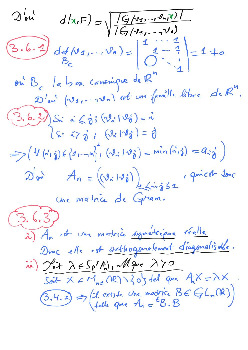 D'où d(x,F) = √(|G(v₁,...,vₙ,x)| / |G(v₁,...,vₙ)|)
3.6.1 det_{B_c}(v₁,...,vₙ) = | 1 ... 1 ; 0 1 | = 1 ≠ 0
où B_c la base canonique de ℝⁿ
D'où (v₁,...,vₙ) est une famille libre de ℝⁿ
3.6.2 Si i ≤ j ; (vᵢ|vⱼ) = i
Si i > j ; (vᵢ|vⱼ) = j
→ ∀(i,j) ∈ {1,...,n}², (vᵢ|vⱼ) = min(i,j) = aᵢⱼ
D'où Aₙ = ((vᵢ|vⱼ))_{1≤i,j≤n}, qui est donc
une matrice de Gram.
3.6.3
i) Aₙ est une matrice symétrique réelle
Donc elle est orthogonalement diagonalisable.
ii) Soit λ ∈ Sp(Aₙ), Mque λ > 0
Soit X ∈ M_{n,1}(ℝ)\{0} tel que AₙX = λX
3.4.2 → il existe une matrice B ∈ GLₙ(ℝ)
telle que Aₙ = ᵗB.B